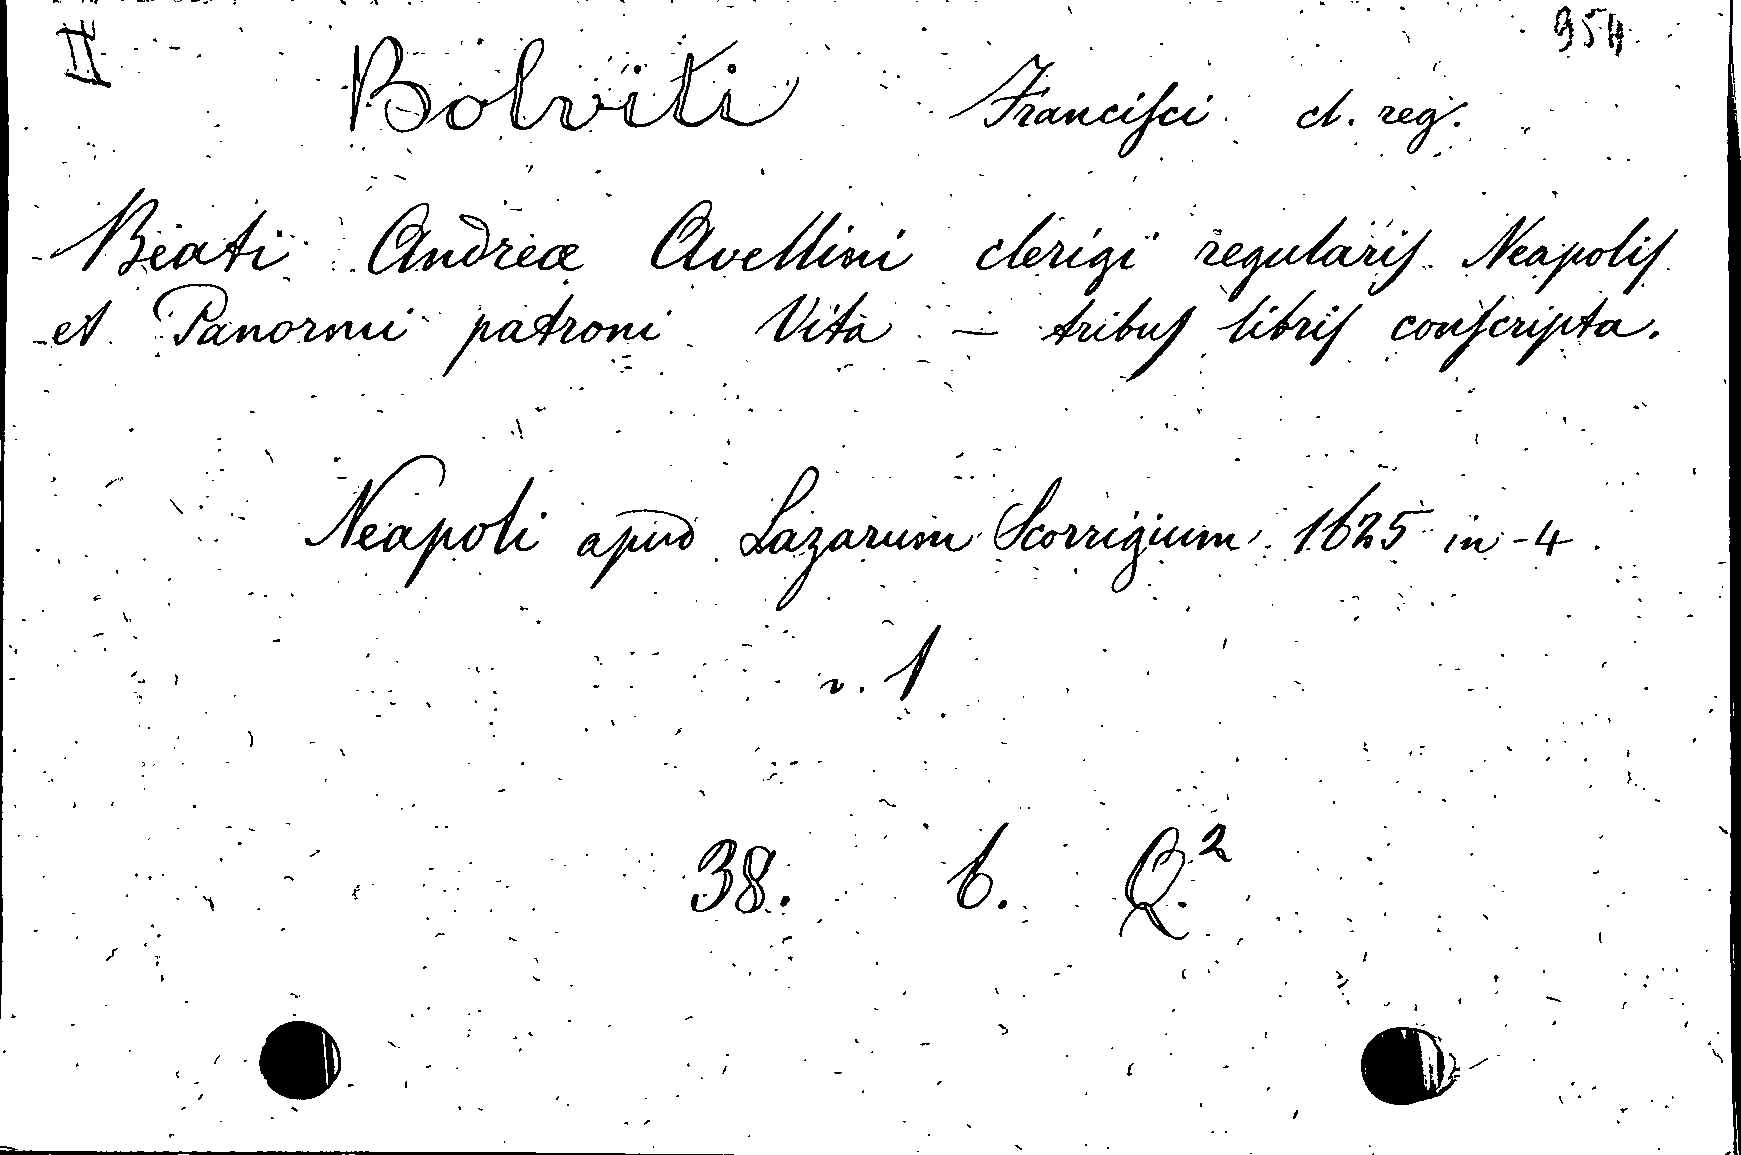 II 954
Bolviti Franciſci cl. reg.
Beati Andreæ Avellini clerigi regulariſ Neapoliſ
et Panormi patroni Vita – tribuſ libriſ conſcripta.
Neapoli apud Lazarum Scorrigium 1625 in-4
v. 1
38. b. Q.²